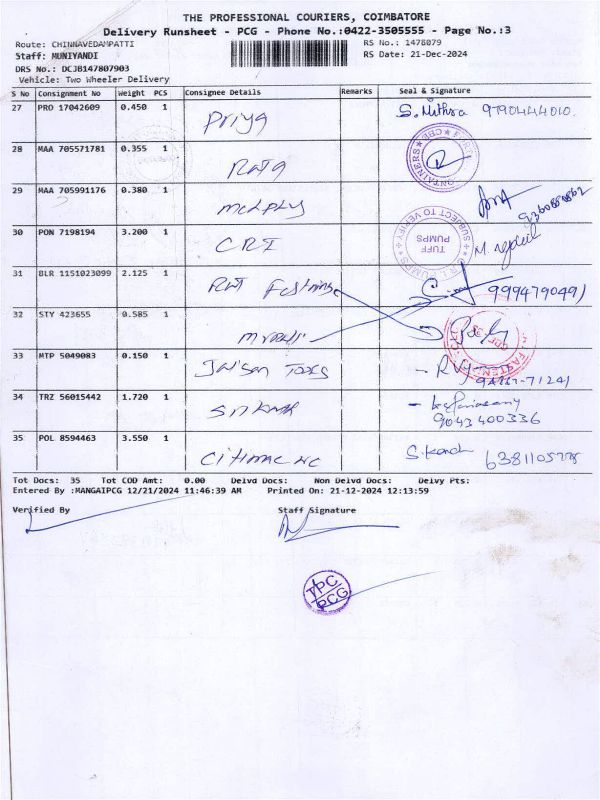 THE PROFESSIONAL COURIERS, COIMBATORE
Delivery Runsheet - PCG - Phone No.:0422-3505555 - Page No.:3
Route: CHINNAVEDAMPATTI RS No.: 1478079
Staff: MUNIYANDI RS Date: 21-Dec-2024
DRS No.: DCJB147807903
Vehicle: Two Wheeler Delivery
S No Consignment No Weight PCS Consignee Details Remarks Seal & Signature
27 PRO 17042609 0.450 1 Priya S. Mithra 9790444010.
28 MAA 705571781 0.355 1 Raja
29 MAA 705991176 0.380 1
30 PON 7198194 3.200 1 CRI TUFF PUMPS SUBJECT TO VERIFY
31 BLR 1151023099 2.125 1 9994790491
32 STY 423655 0.585 1
33 MTP 5049083 0.150 1 Jaison Tools
34 TRZ 56015442 1.720 1 9043400336
35 POL 8594463 3.550 1
Tot Docs: 35 Tot COD Amt: 0.00 Delvd Docs: Non Delvd Docs: Delvy Pts:
Entered By :MANGAIPCG 12/21/2024 11:46:39 AM Printed On: 21-12-2024 12:13:59
Verified By Staff Signature
TPC
PCG